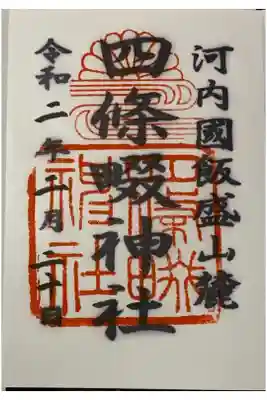 河内國飯盛山麓
四條畷神社
令和二年二月二十日